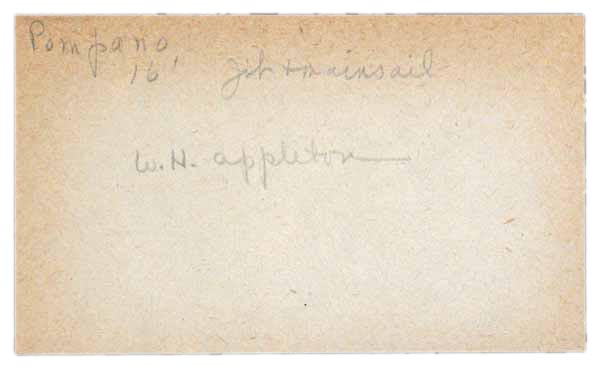 Pompano
16' Jib + mainsail
W. H. Appleton